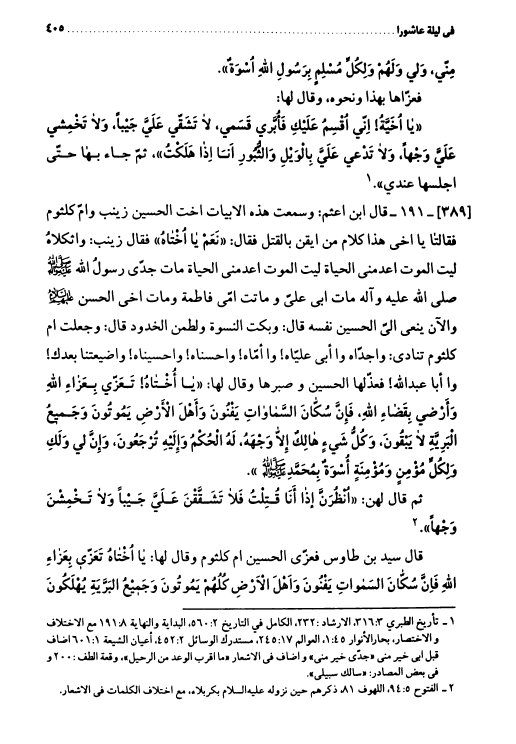 في ليلة عاشورا ........................................................ ٤٠٥
مِنّي، وَلي وَلَهُمْ وَلِكُلِّ مُسْلِمٍ بِرَسُولِ اللهِ اُسْوَةٌ».
فعزّاها بهذا ونحوه، وقال لها:
«يٰا اُخَيَّةُ! اِنّي اُقْسِمُ عَلَيْكِ فَأَبِّري قَسَمي، لاٰ تَشَقّي عَلَيَّ جَيْباً، وَلاٰ تَخْمِشي
عَلَيَّ وَجْهاً، وَلاٰ تَدْعي عَلَيَّ بِالْوَيْلِ وَالثُّبُورِ اَنـَا اِذٰا هَلَكْتُ»، ثمّ جاء بهٰا حتّى
اجلسها عندي».١
[٣٨٩] ـ ١٩١ ـ قال ابن اعثم: وسمعت هذه الابيات اخت الحسين زينب وامّ كلثوم
فقالتٰا يا اخى هذا كلام من ايقن بالقتل فقال: «نَعَمْ يٰا اُخْتٰاهُ» فقال زينب: واثكلاهُ
ليت الموت اعدمنى الحياة ليت الموت اعدمنى الحياة مات جدّى رسولُ الله ﷺ
صلى الله عليه و آله مات ابى علىّ و ماتت امّى فاطمة ومات اخى الحسن ﷷ
والآن ينعى الىّ الحسين نفسه قال: وبكت النسوة ولطمن الخدود قال: وجعلت ام
كلثوم تنادى: واجدّاه وا أبى عليّاه! وا أمّاه! واحسناه! واحسيناه! واضيعتنا بعدك!
وا أبا عبدالله! فعذّلها الحسين و صبرها وقال لها: «يٰـا اُخْـتٰاهُ! تَـعَزّي بِـعَزٰاءِ اللهِ
وَأَرْضي بِقَضٰاءِ اللهِ، فَإِنَّ سُكّٰانَ السَّمٰاوٰاتِ يَفْنُونَ وَأَهْلَ الْأَرْضِ يَمُوتُونَ وَجَـميعُ
الْبَرِيَّةِ لاٰ يَبْقُونَ، وَكُلُّ شَيءٍ هٰالِكٌ إِلاّٰ وَجْهَهُ، لَهُ الْحُكْمُ وَإِلَيْهِ تُرْجَعُونَ، وَإِنَّ لي وَلَكِ
وَلِكُلِّ مُؤْمِنٍ وَمُؤْمِنَةٍ اُسْوَةٌ بِمُحَمَّدٍ ﷺ».
ثم قال لهن: «اُنْظُرَنَّ إِذٰا أَنَا قُـتِلْتُ فَلاٰ تَشْـقُقْنَ عَـلَيَّ جَـيْباً وَلاٰ تَـخْمِشْنَ
وَجْهاً».٢
قال سيد بن طاوس فعزّى الحسين ام كلثوم وقال لها: يٰا اُخْتٰاهُ تَعَزّي بِعَزٰاءِ
اللهِ فَإِنَّ سُكّٰانَ السَّمٰواتِ يَفْنُونَ وَأَهْلَ الْأَرْضِ كُلُّهُمْ يَمُوتُونَ وَجَميعُ الْبَرِيَّةِ يَهْلَكُونَ
١ ـ تأريخ الطبري ٣١٦:٣، الارشاد: ٢٣٢، الكامل في التاريخ ٥٦٠:٢، البداية والنهاية ١٩١:٨ مع الاختلاف
و الاختصار، بحارالأنوار ١:٤٥، العوالم ٢٤٥:١٧، مستدرك الوسائل ٤٥٢:٢، أعيان الشيعة ٦٠١:١ اضاف
قبل ابى خير منى «جدّى خير منى» و اضاف فى الاشعار «ما اقرب الوعد من الرحيل»، وقعة الطف: ٢٠٠ و
فى بعض المصادر: «سالك سبيلى».
٢ ـ الفتوح ٩٤:٥، اللهوف ٨١، ذكرهم حين نزوله عليه‌السلام بكربلاء، مع اختلاف الكلمات فى الاشعار.